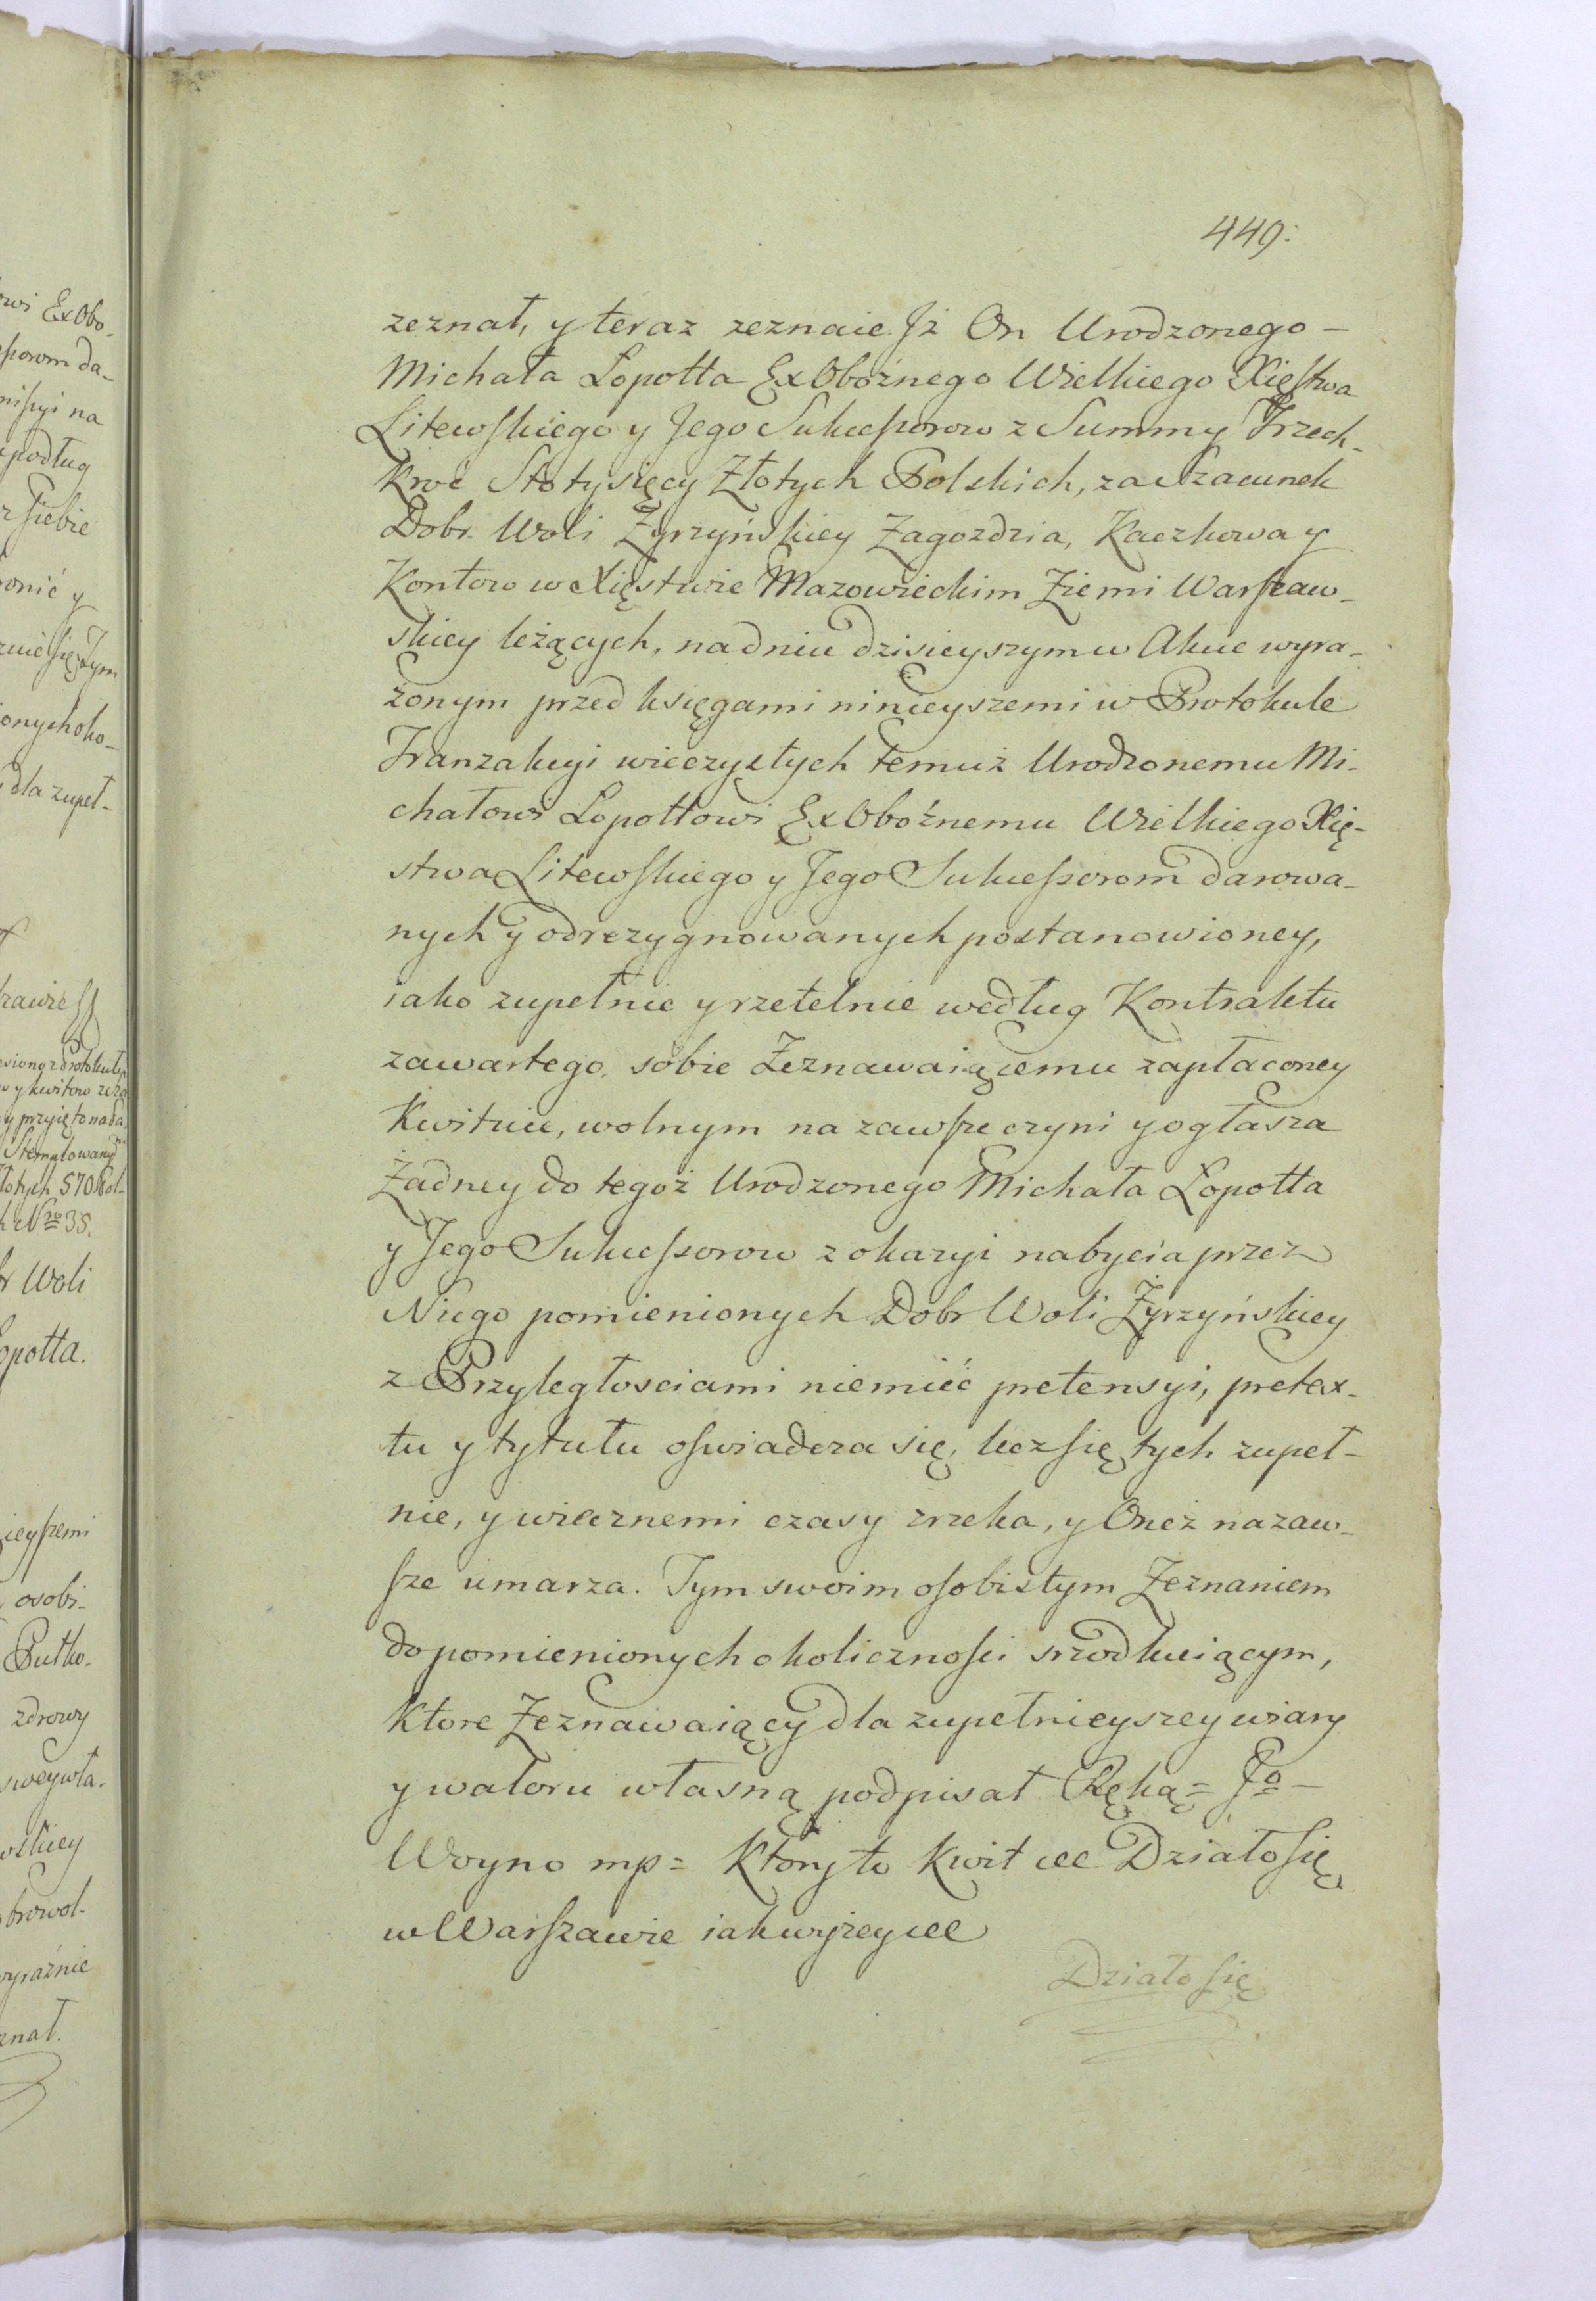 449:
zeznał, y teraz zeznaie Jż On Urodzonego –
Michała Łopotta ExObożnego Wielkiego Xięstwa
Litewskiego y Jego Sukcessorow z Summy Trzech-
kroć Stotysięcy Złotych Polskich, za Szacunek
Dobr Woli Żyrzyńskiey Zagozdzia, Kaczkowa y
Kontow w Xięstwie Mazowieckim Ziemi Warszaw-
skiey leżących, na dniu dzisieyszym w Akcie wyra-
żonym przed księgami ninieyszemi w Protokule
Tranzakcyi wieczystych temuż Urodzonemu Mi-
chałowi Łopottowi ExObożnemu Wielkiego Xię-
stwa Litewskiego y Jego Sukcessorom darowa-
nych y odrezygnowanych postanowioney,
iako zupełnie y rzetelnie według Kontraktu
zawartego sobie Zeznawaiącemu zapłaconey
Kwituie, wolnym na zawsze czyni y ogłasza
Żadney do tegoż Urodzonego Michała Łopotta
y Jego Sukcessorow z okazyi nabycia przez
Niego pomienionych Dobr Woli Żyrzyńskiey
z Przyległosciami niemieć pretensyi, pretex-
tu y tytułu oswiadcza się, lecz się tych zupeł-
nie, y wiecznemi czasy zrzeka, y Oneż na zaw-
sze umarza. Tym swoim osobistym Zeznaniem
do pomienionych okolicznosci srzodkuiącym,
ktore Zeznawaiący dla zupełnieyszey wiary
y waloru własną podpisał Ręką = Jo –
Woyno mp = Ktory to kwit etc Działo się
w Warszawie iak wyżey etc
Działo się
owi ExObo-
na
podług
siebie
onić y
dla zupeł-
Woli
osobi-
zdrowy
znał.